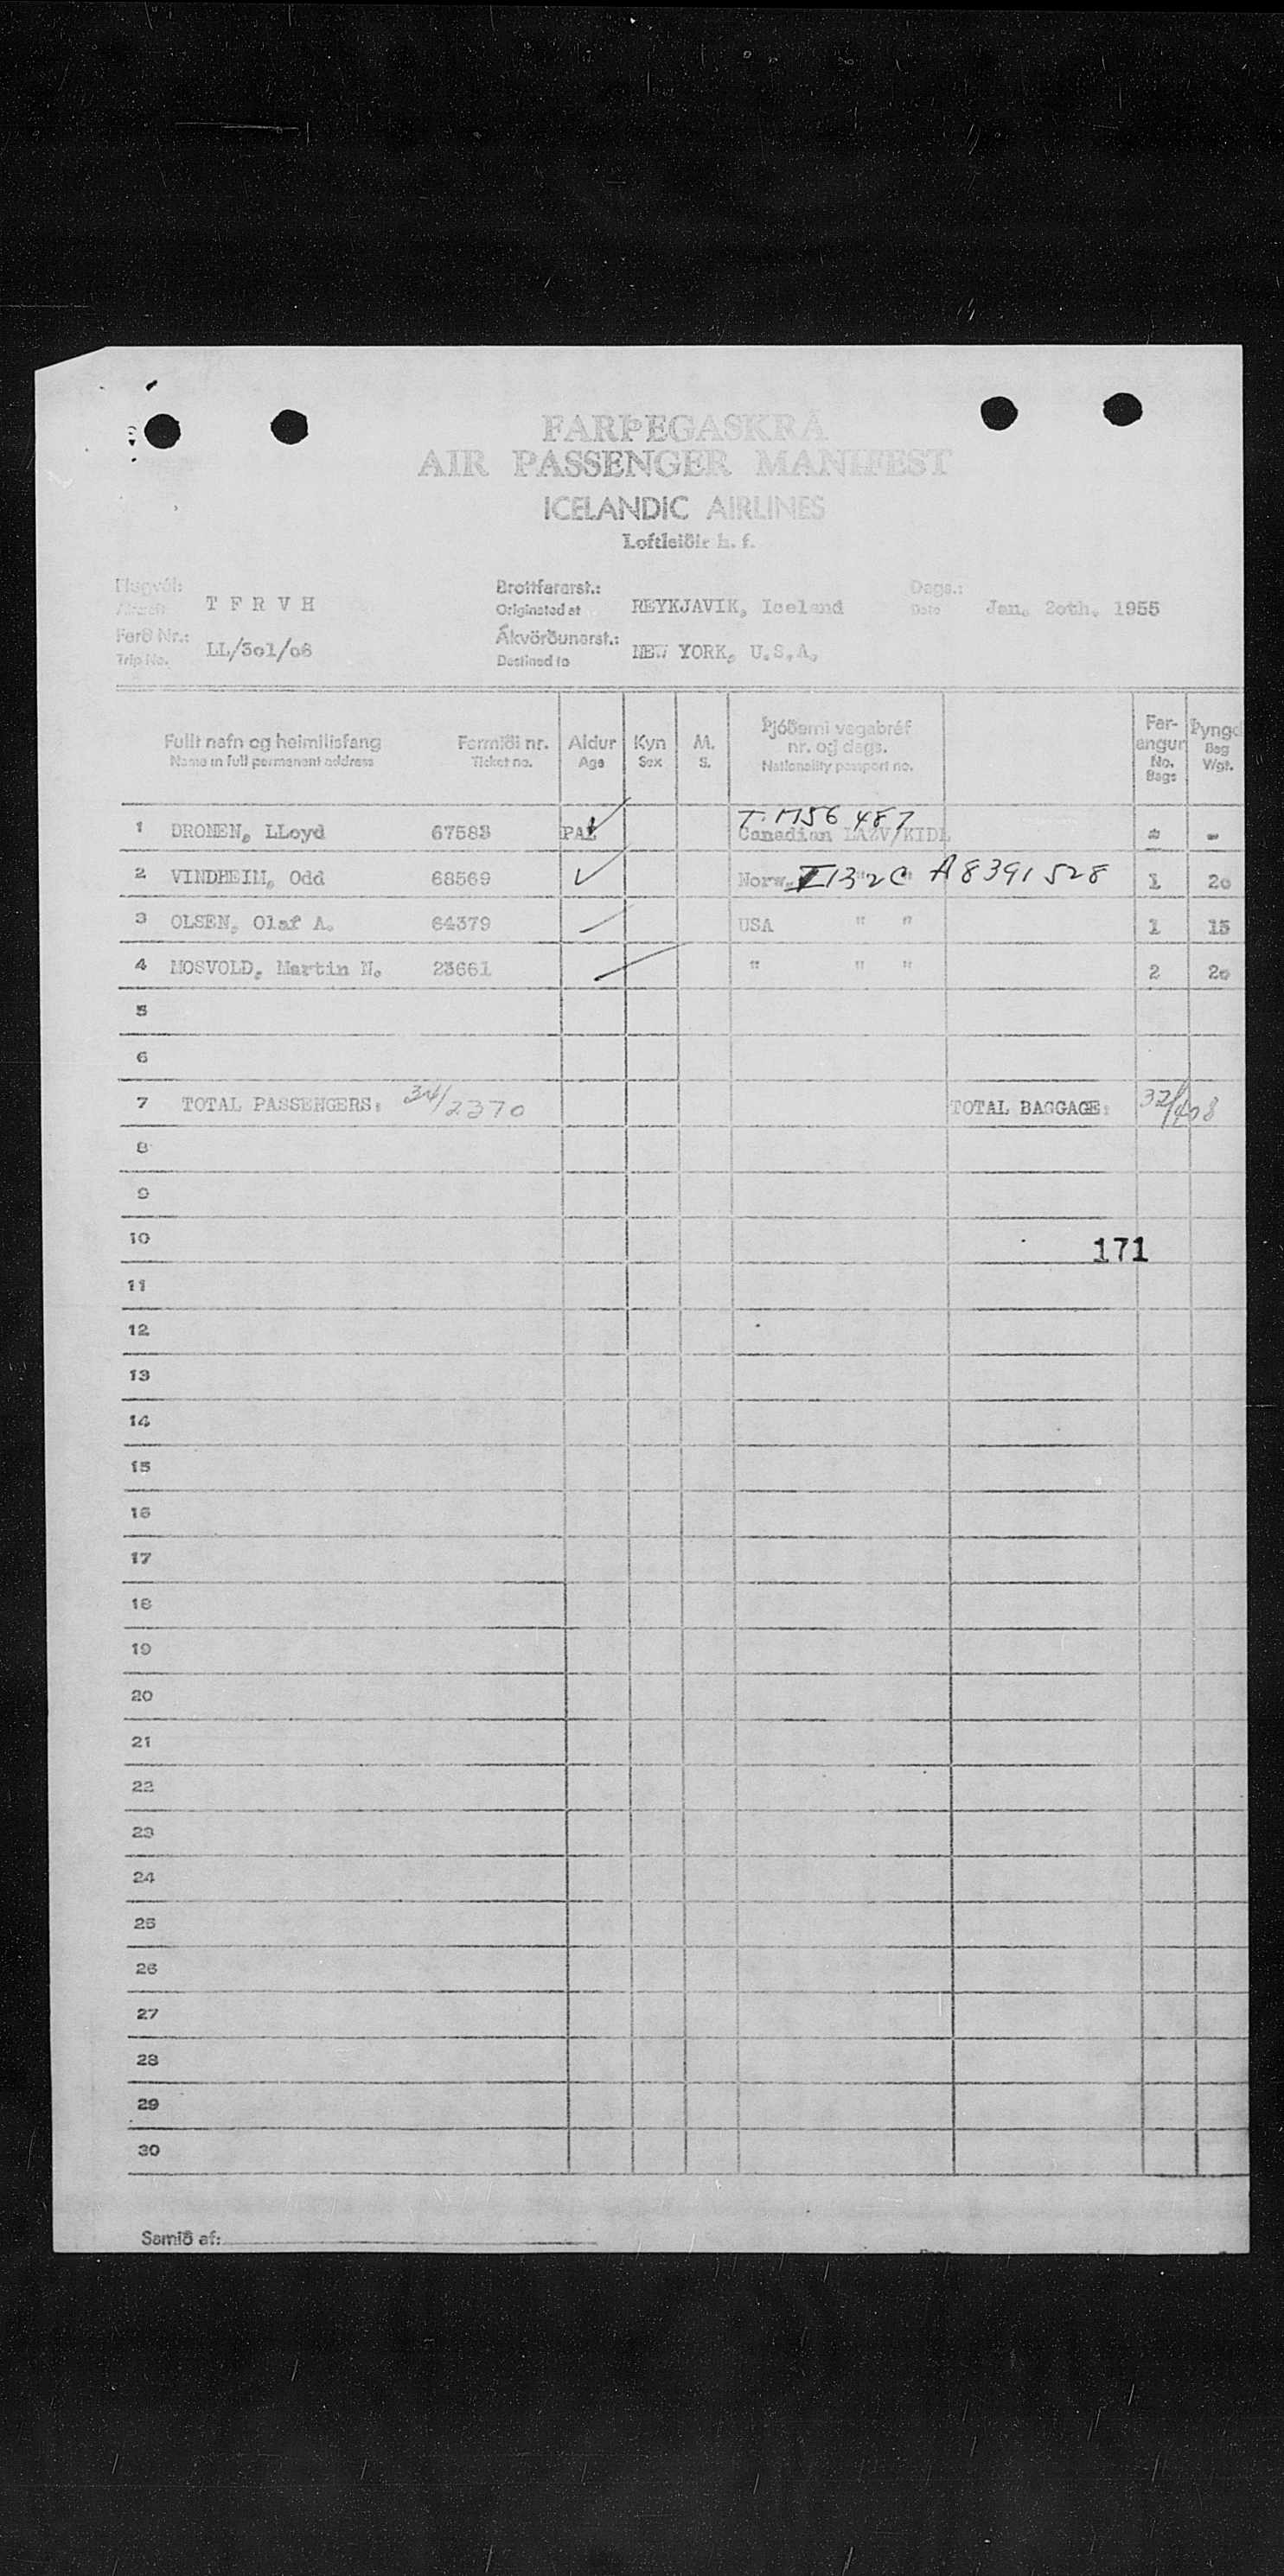 FARÞEGASKRÁ
AIR PASSENGER MANIFEST
ICELANDIC AIRLINES
Loftleiðir h. f.
Flugvél: Brottfararst.: Dags.:
Aircraft T F R V H Originated at REYKJAVIK, Iceland Date Jan. 2oth. 1955
Ferð Nr.: Ákvörðunarst.:
Trip No. LL/3o1/o8 Destined to NEW YORK, U.S.A.
Fullt nafn og heimilisfang Farmiði nr. Aldur Kyn M. Þjóðerni vegabréf nr. og dags. Farangur Þyngd
Name in full permanent address Ticket no. Age Sex S. Nationality passport no. No. Bags Bag Wgt.
T. 1756 487
1 DRONEN, LLoyd 67583 Canadian - -
2 VINDHEIM, Odd 68569 Norw. I132C " A8391528 1 2o
3 OLSEN, Olaf A. 64379 USA " " 1 15
4 MOSVOLD, Martin N. 23661 " " " 2 2o
5
6
7 TOTAL PASSENGERS: 34/2370 TOTAL BAGGAGE: 32/408
8
9
10 171
11
12
13
14
15
16
17
18
19
20
21
22
23
24
25
26
27
28
29
30
Samið af: